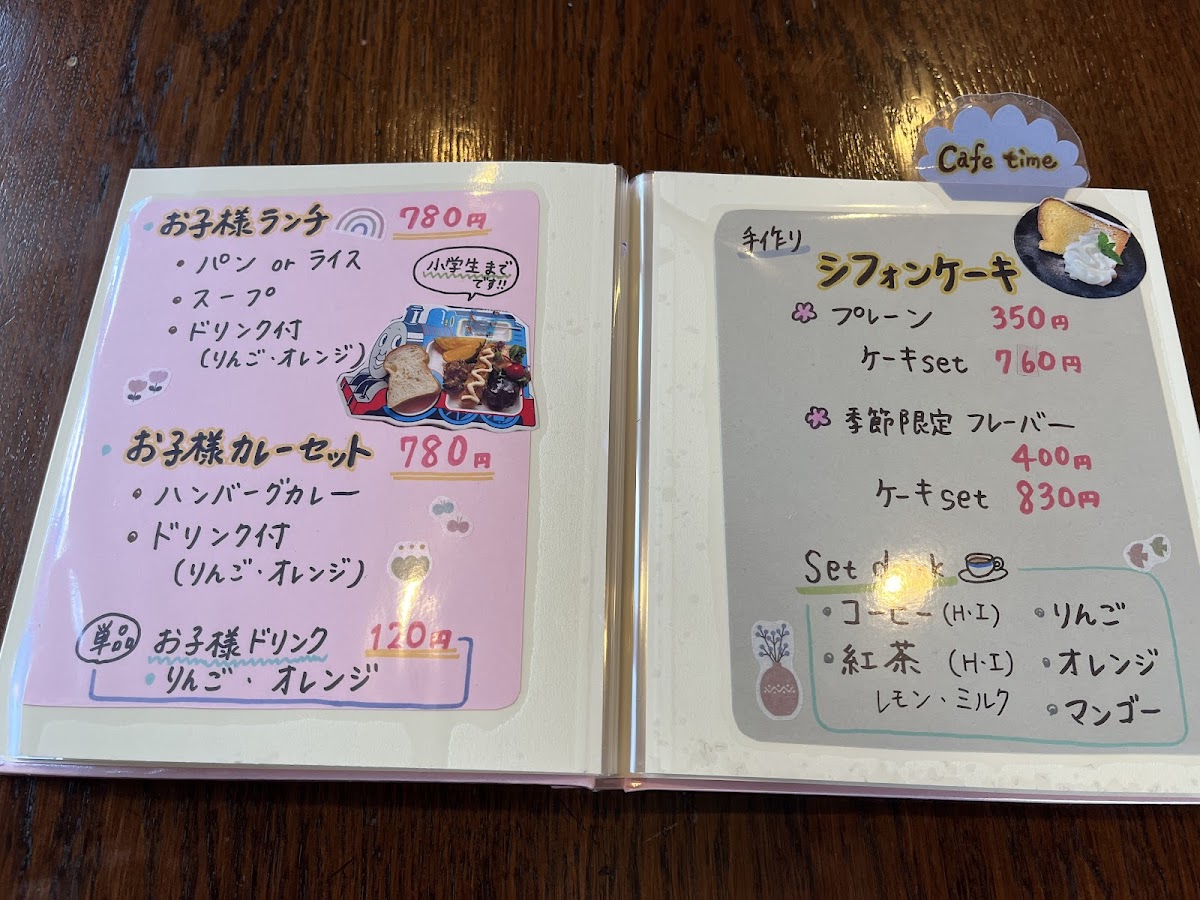 お子様ランチ 780円
・パン or ライス
・スープ
・ドリンク付
(りんご・オレンジ)
小学生まで
です!!
・お子様カレーセット 780円
・ハンバーグカレー
・ドリンク付
(りんご・オレンジ)
単品 お子様ドリンク 120円
・りんご・オレンジ
Cafe time
手作り
シフォンケーキ
プレーン 350円
ケーキset 760円
季節限定 フレーバー
400円
ケーキset 830円
Set
・コーヒー(H・I) ・りんご
・紅茶 (H・I) ・オレンジ
レモン・ミルク ・マンゴー